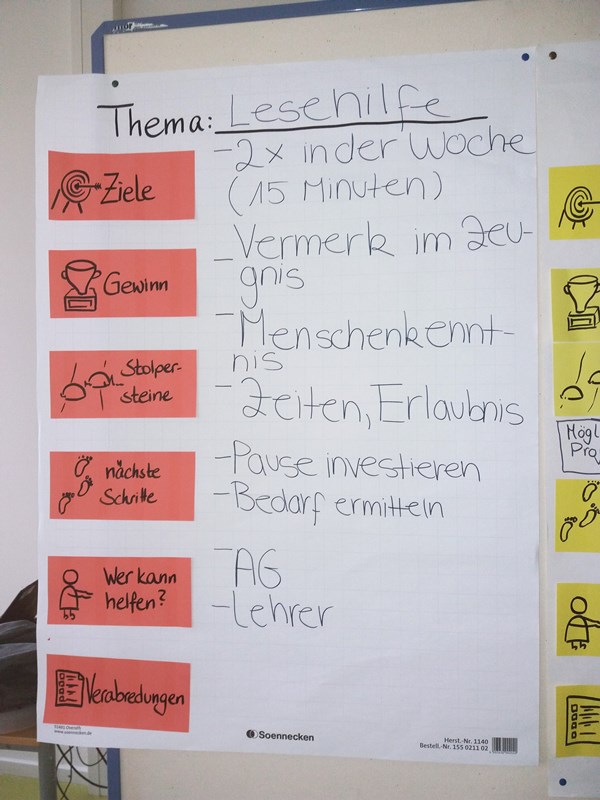 Thema: Lesehilfe
Ziele
- 2x in der Woche
(15 Minuten)
Gewinn
- Vermerk im Zeu-
gnis
- Menschenkennt-
nis
Stolper-
steine
- Zeiten, Erlaubnis
nächste
Schritte
- Pause investieren
- Bedarf ermitteln
Wer kann
helfen?
- AG
- Lehrer
Verabredungen
www.soennecken.de
Soennecken
Herst.-Nr. 1140
Bestell.-Nr. 155 0211 02
Mögl
Pro